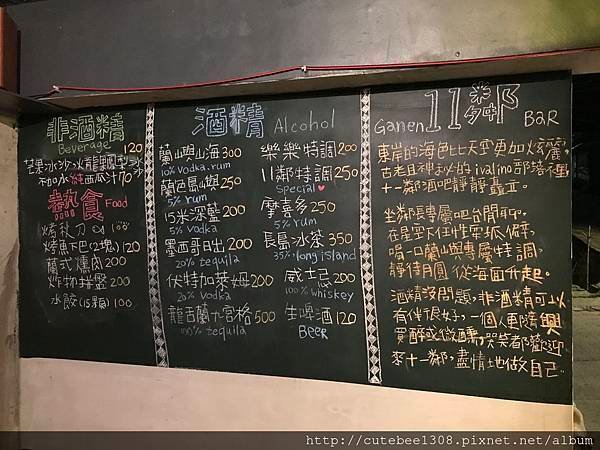 非酒精
Beverage 120
芒果冰沙
不加水純西瓜汁 70
熱食 Food
烤秋刀 100
烤魚下巴(2塊) 120
蘭式燻肉 200
炸物拼盤 200
水餃(15顆) 100
酒精 Alcohol
蘭嶼山海 300
10% vodka.rum
蘭色島嶼 250
5% rum
15米深藍 200
5% vodka
墨西哥日出 200
20% tequila
伏特加萊姆 200
20% vodka
龍舌蘭九宮格 500
100% tequila
樂樂特調 200
11鄰特調 250
Special
摩喜多 250
5% rum
長島冰茶 350
35% long island
威士忌 200
100% whiskey
生啤酒 120
BEER
Ganen 11鄰 BAR
東岸的海色比天空更加炫麗，
古老且神秘的 ivalino 部落裡
十一鄰酒吧靜靜矗立。
坐鄰長專屬吧台閒聊。
在星空下任性耍孤僻，
喝一口蘭嶼專屬特調，
靜待月圓從海面升起。
酒精沒問題，非酒精可以
有伴很好，一個人更隨興
買醉或微醺，哭笑都歡迎
來十一鄰，盡情地做自己。
http://cutebee1308.pixnet.net/album